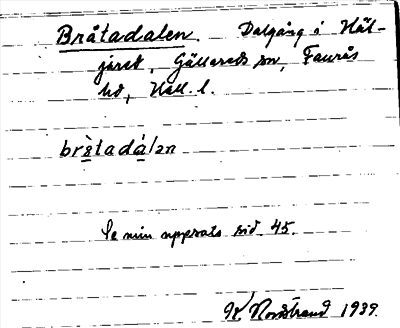 Bråtadalen. Dalgång i Häl-
jared, Gällareds sn, Faurås
hd, Hall. l.
Se min uppsats sid. 45.
Nordstrand 1939.